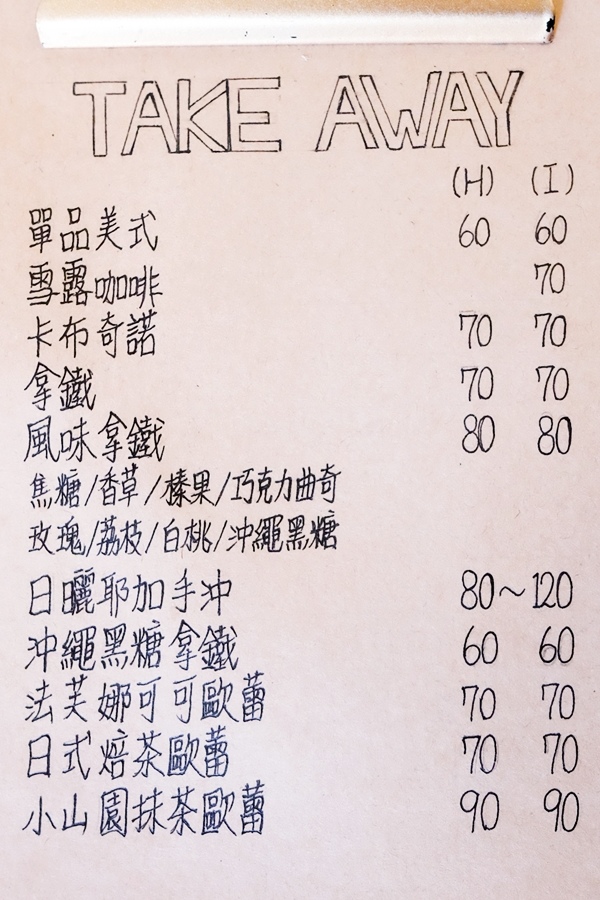 TAKE AWAY
(H) (I)
單品美式 60 60
雪露咖啡 70
卡布奇諾 70 70
拿鐵 70 70
風味拿鐵 80 80
焦糖/香草/榛果/巧克力曲奇
玫瑰/荔枝/白桃/沖繩黑糖
日曬耶加手沖 80~120
沖繩黑糖拿鐵 60 60
法芙娜可可歐蕾 70 70
日式焙茶歐蕾 70 70
小山園抹茶歐蕾 90 90